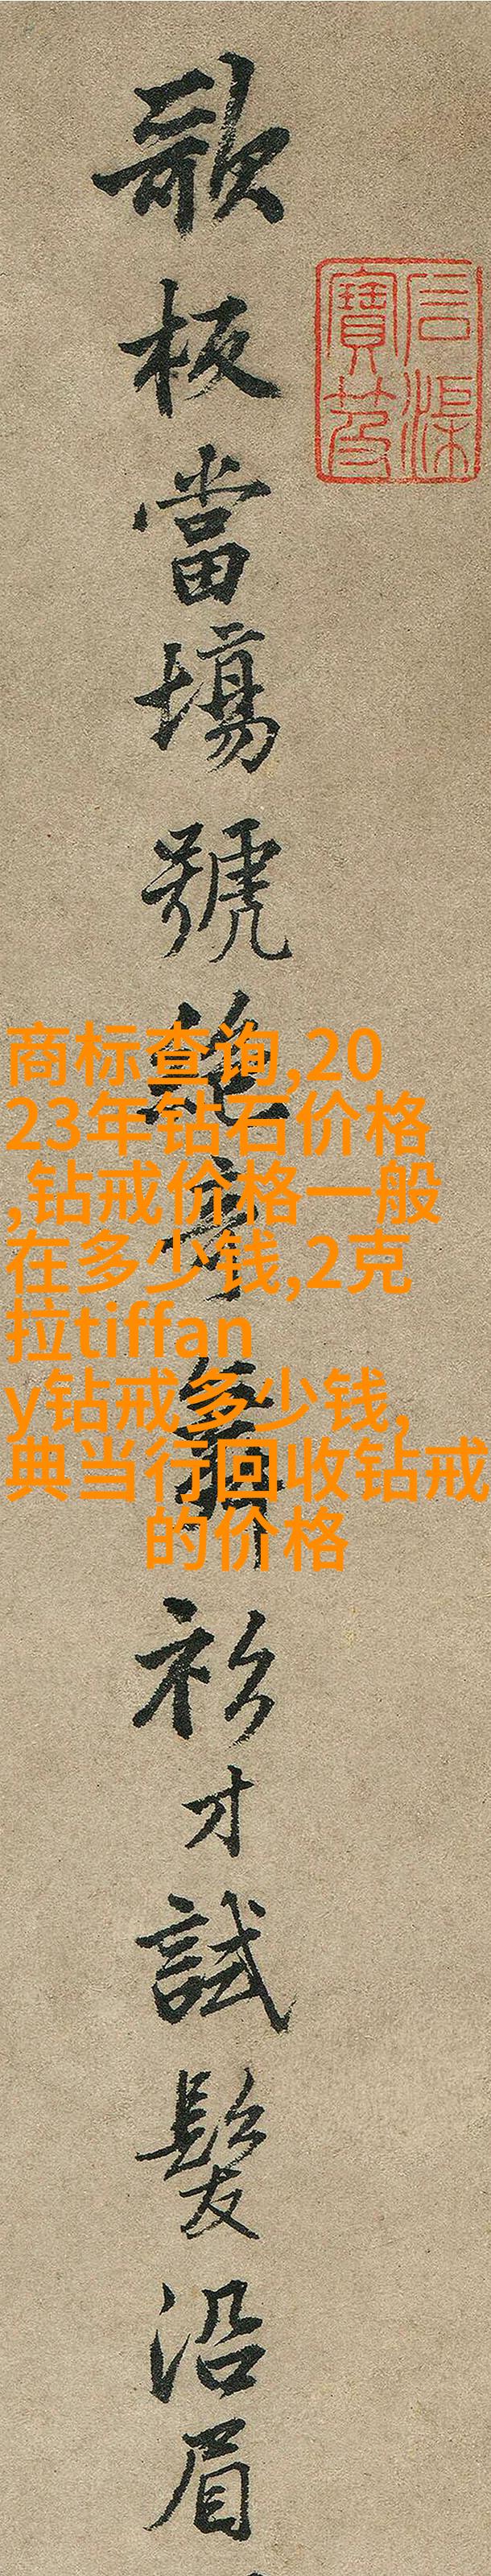 石渠
寶笈
歌板當場號絕奇舞衫才試髮沿眉
商标查询,20
23年钻石价格
,钻戒价格一般
在多少钱,2克
拉tiffan
y钻戒多少钱,
典当行回收钻戒
的价格